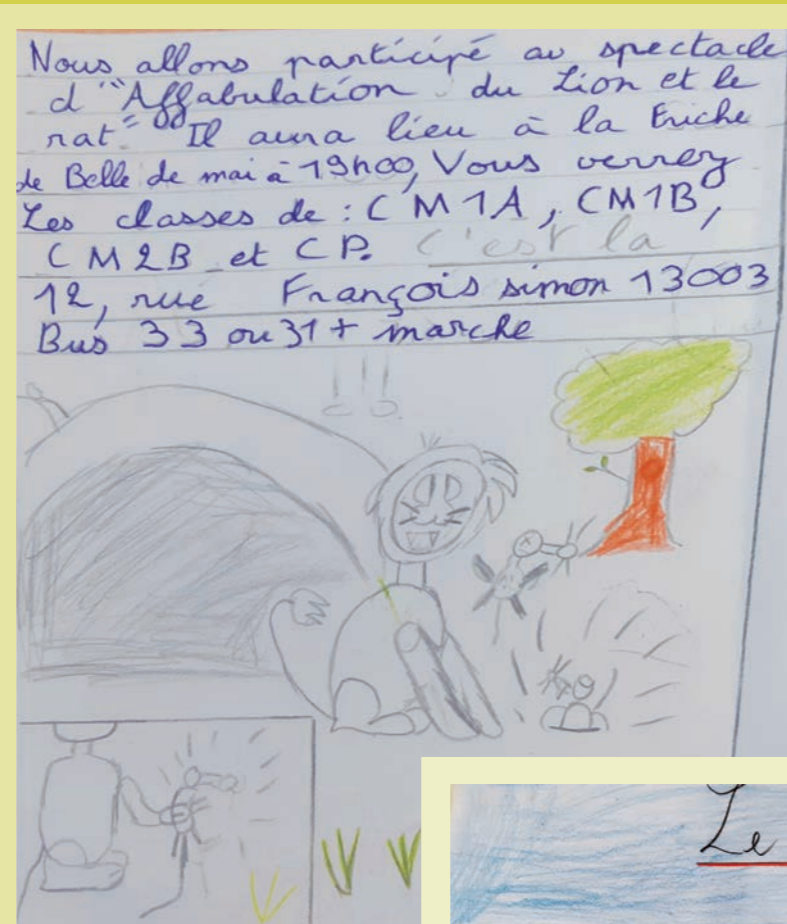 Nous allons participé au spectacle
d'"Affabulation du Lion et le
rat" Il aura lieu à la Friche
de Belle de mai à 19h00, Vous verrez
Les classes de : CM1A, CM1B,
CM2B et CP. C'est la
12, rue François simon 13003
Bus 33 ou 31 + marche
Le